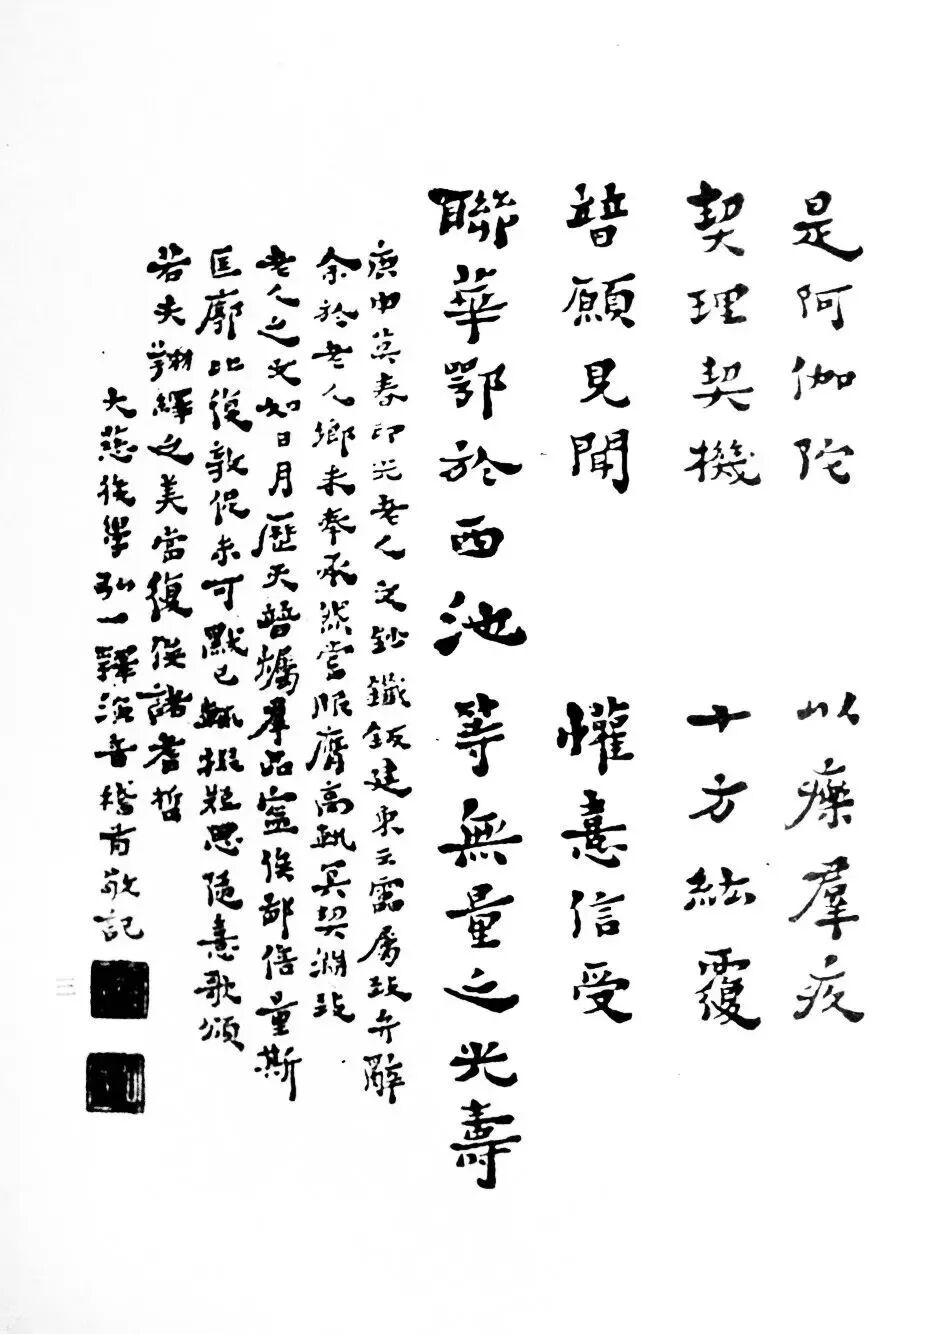 是阿伽陀 以療羣疚
契理契機 十方紘覆
普願見聞 懽憙信受
聯華鄂於西池 等無量之光壽
庚申莫春印光老人文鈔鐵鈑建東云雷屬致弁辭
余於老人鄉未奉承然嘗服膺高軌冥契淵致
老人之文如日月歷天普爥羣品寧俟鄙倍量斯
匡廓比復敦促未可默已輒掇粗思隨憙歌頌
若夫翔繹之美當復俟諸耆哲
大慈後學弘一釋演音稽首敬記
三